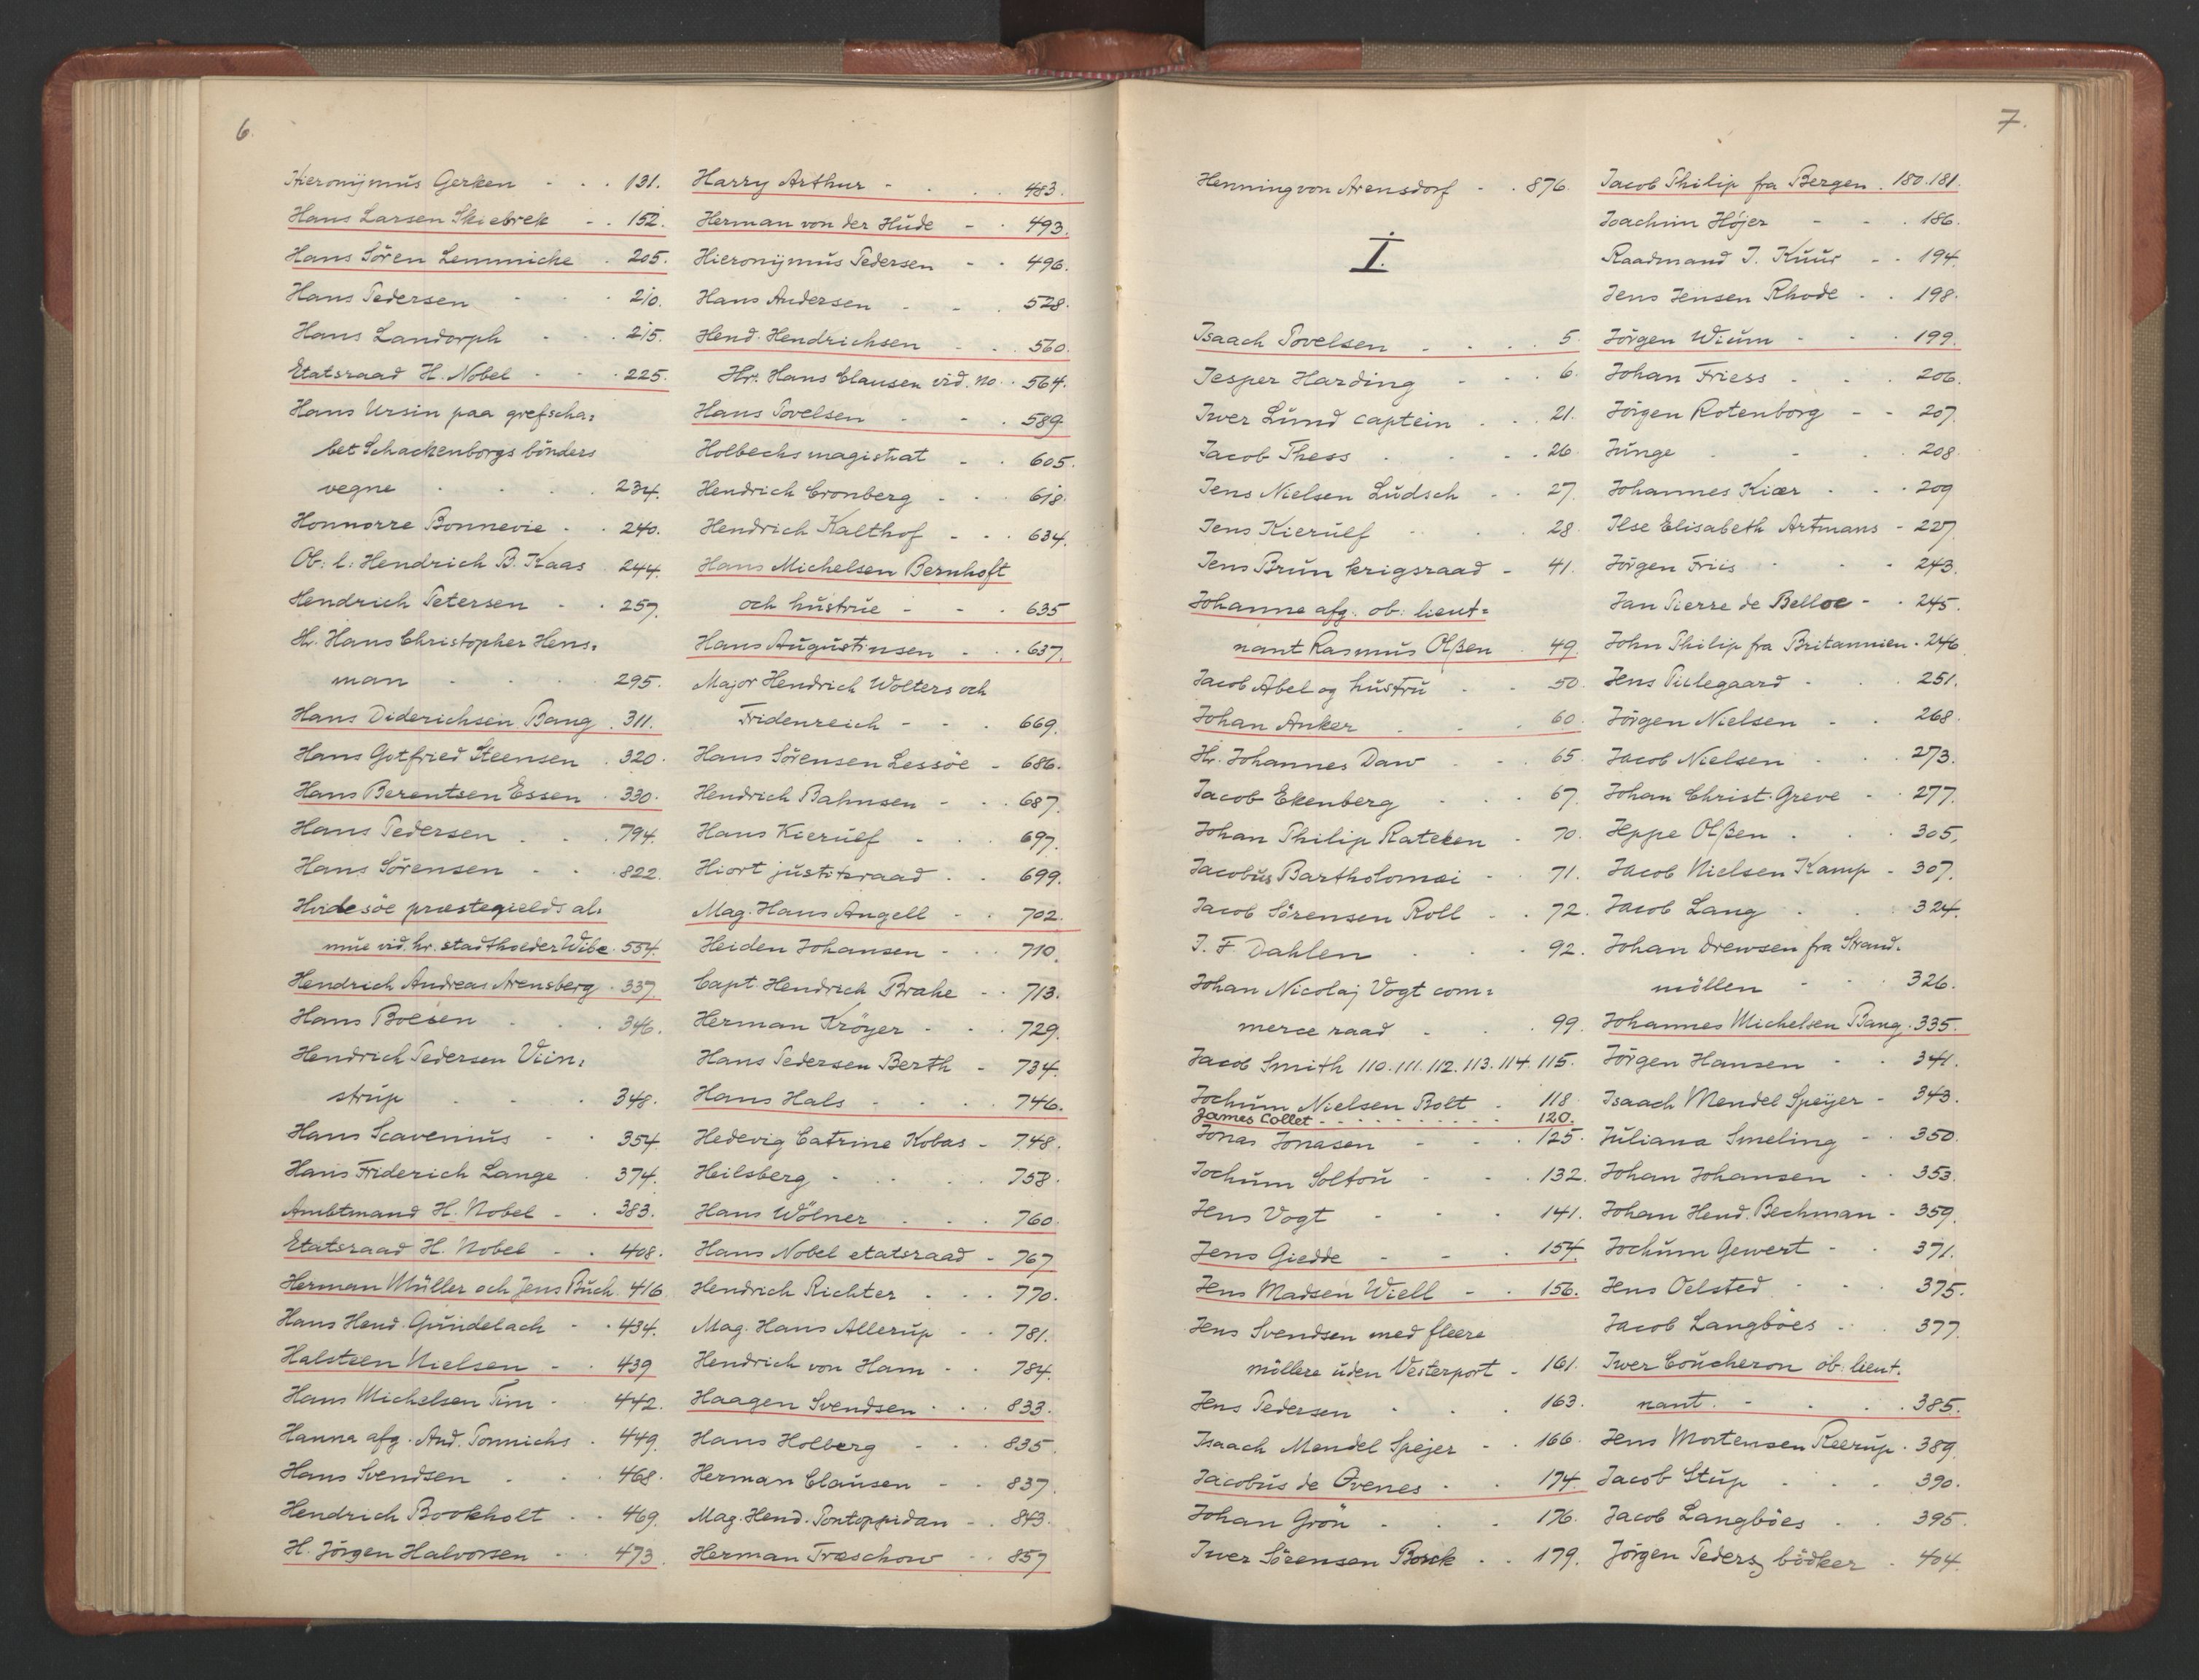 6.
Hieronÿmus Gerken - . . 131.
Hans Larsen Skiebrek - . 152.
Hans Sören Lemmiche . 205.
Hans Pedersen - . . 210.
Hans Landorph - . . 215.
Etatsraad H. Nobel - . . 225.
Hans Ursin paa grefscha=
bet Schackenborgs bönders
vegne . . . . 234.
Honnorre Bonnevie . . 240.
Ob: l: Hendrich B. Kaas . 244.
Hendrich Petersen . . 257.
Hr. Hans Christopher Hens=
man . . . . 295.
Hans Diderichsen Bang . 311.
Hans Gotfried Steensen . 320.
Hans Berentsen Essen . 330.
Hans Pedersen . . . 794.
Hans Sörensen . . . 822.
Hvidesöe præstegields al=
mue vid. hr. stadtholder Wibe . 554.
Hendrich Andreas Arensberg . 337.
Hans Boesen . . . 346.
Hendrich Pedersen Viin=
strup . . . 348.
Hans Scavenius . . 354
Hans Friderich Lange . 374.
Ambtmand H. Nobel - . 383.
Etatsraad H. Nobel - . 408.
Herman Müller och Jens Buch . 416
Hans Hend. Gundelach - . 434.
Halsteen Nielsen - . 439
Hans Michelsen Tim - . 442.
Hanna afg. And. Tonnichs . 449.
Hans Svendsen . . . 468.
Hendrich Bookholt . . 469.
H. Jörgen Halvorsen . . 473.
Harry Arthur - . . . 483.
Herman von der Hude - . 493.
Hieronÿmus Pedersen - . 496.
Hans Andersen - . . 528.
Hend. Hendrichsen - . . 560.
Hr. Hans Clausen vid. no. . 564.
Hans Povelsen - . . 589
Holbechs magistrat - . 605.
Hendrich Cronberg - . . 618.
Hendrich Kalthof - . . 634.
Hans Michelsen Bernhoft
och hustrue - - . 635
Hans Augustinsen - . . 637.
Major Hendrich Wolters och
Fridenreich - - . 669.
Hans Sörensen Lessöe - 686.
Hendrich Bahnsen - . . 687.
Hans Kierulf - . . 697.
Hiort justitsraad . . 699.
Mag. Hans Angell - . 702.
Heiden Johansen - . . 710.
Capt. Hendrich Brahe - . 713.
Herman Kröyer - . . 729.
Hans Pedersen Berth - 734.
Hans Hals - . . . 746.
Hedevig Catrine Kobas - 748.
Heilsberg - . . . . 758.
Hans Wölner . . . 760.
Hans Nobel etatsraad - 767
Hendrich Richter . . . 770.
Mag. Hans Allerup . . 781.
Hendrich von Ham - . 784.
Haagen Svendsen . . . 833.
Hans Holberg - . . 835.
Herman Clausen - . 837.
Mag. Hend. Pontoppidan - . 843.
Herman Træschow . . 857
7.
Henning von Arensdorf - . 876.
I.
Isaach Povelsen - . . . 5.
Jesper Harding - . . 6.
Iwer Lund captein . . . 21.
Jacob Thess . . . . 26
Jens Nielsen Ludsch . . 27.
Jens Kierulf . . . 28
Jens Brun krigsraad - 41.
Johanne afg. ob: lieut=
nant Rasmus Olßen . 49.
Jacob Abel og hustru . . 50.
Johan Anker . . . 60.
Hr. Johannes Daw - . 65.
Jacob Ekenberg . . . 67.
Johan Philip Rateken - 70.
Jacobus Bartholomæi - . 71.
Jacob Sörensen Roll . . 72.
J. F. Dahlen . . . 92.
Johan Nicolaj Vogt com=
merce raad - . . 99.
Jacob Smith 110. 111. 112. 113. 114. 115.
Jochum Nielsen Bolt - 118.
James Collet - . . . . . . . 120.
Jonas Jonasen - . . 125.
Jochum Soltou - . . 132.
Jens Vogt - . . 141.
Jens Giedde - - . 154.
Jens Madsen Wiell - . 156.
Jens Svendsen med fleere
möllere uden Vesterport - 161.
Jens Pedersen . . . 163.
Isaach Mendel Spejer - . 166.
Jacobus de Ovenes . . 174.
Johan Grön - . . 176.
Iwer Sörensen Borck . . 179.
Jacob Philip fra Bergen . 180. 181.
Joachim Höjer - - . 186.
Raadmand J. Kuur - . 194.
Jens Jensen Rhode . . 198.
Jörgen Wium - . . 199.
Johan Friess . . . 206.
Jörgen Rotenborg - - 207.
Junge . - . 208.
Johannes Kiær . . . 209
Ilse Elisabeth Artmans - 227.
Jörgen Friis . . . 243.
Jan Pierre de Belloc - . 245.
John Philip fra Britannien . 246.
Jens Pillegaard - . . 251.
Jörgen Nielsen - . 268.
Jacob Nielsen . . . 273.
Johan Christ. Greve - . 277.
Jeppe Olßen . . . 305.
Jacob Nielsen Kamp - 307.
Jacob Lang . . . 324.
Johan Drewsen fra Strand=
möllen - . . 326.
Johannes Michelsen Bang . 335.
Jörgen Hansen - . 341.
Isaach Mendel Speÿer - 343.
Juliana Smeling - . 350.
Johan Johansen . . 353.
Johan Hend. Bechman . 359.
Jochum Gewert - . 371.
Jens Oelsted . . . 375.
Jacob Langböes . . . 377.
Iwer Coucheron ob: lieut=
nant. - . . . 385.
Jens Mortensen Reerup . 389.
Jacob Stup . . . 390.
Jacob Langböes . . 395.
Jörgen Peders. bödker . 404.